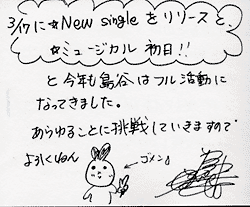 3/17に☆New singleをリリースと、
☆ミュージカル 初日!!
と 今年も島谷はフル活動に
なってきました。
あらゆることに挑戦していきますので
よろしくねん
←ゴメン♪